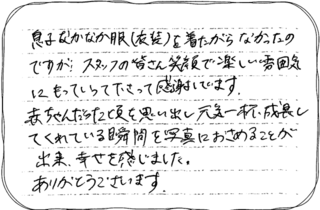 息子なかなか服(衣装)を着たがらなかったの
ですが、スタッフの皆さん笑顔で楽しい雰囲気
にもっていって下さって感謝しています。
赤ちゃんだった頃を思い出し元気一杯、成長し
てくれている瞬間を写真におさめることが
出来、幸せを感じました。
ありがとうございます。